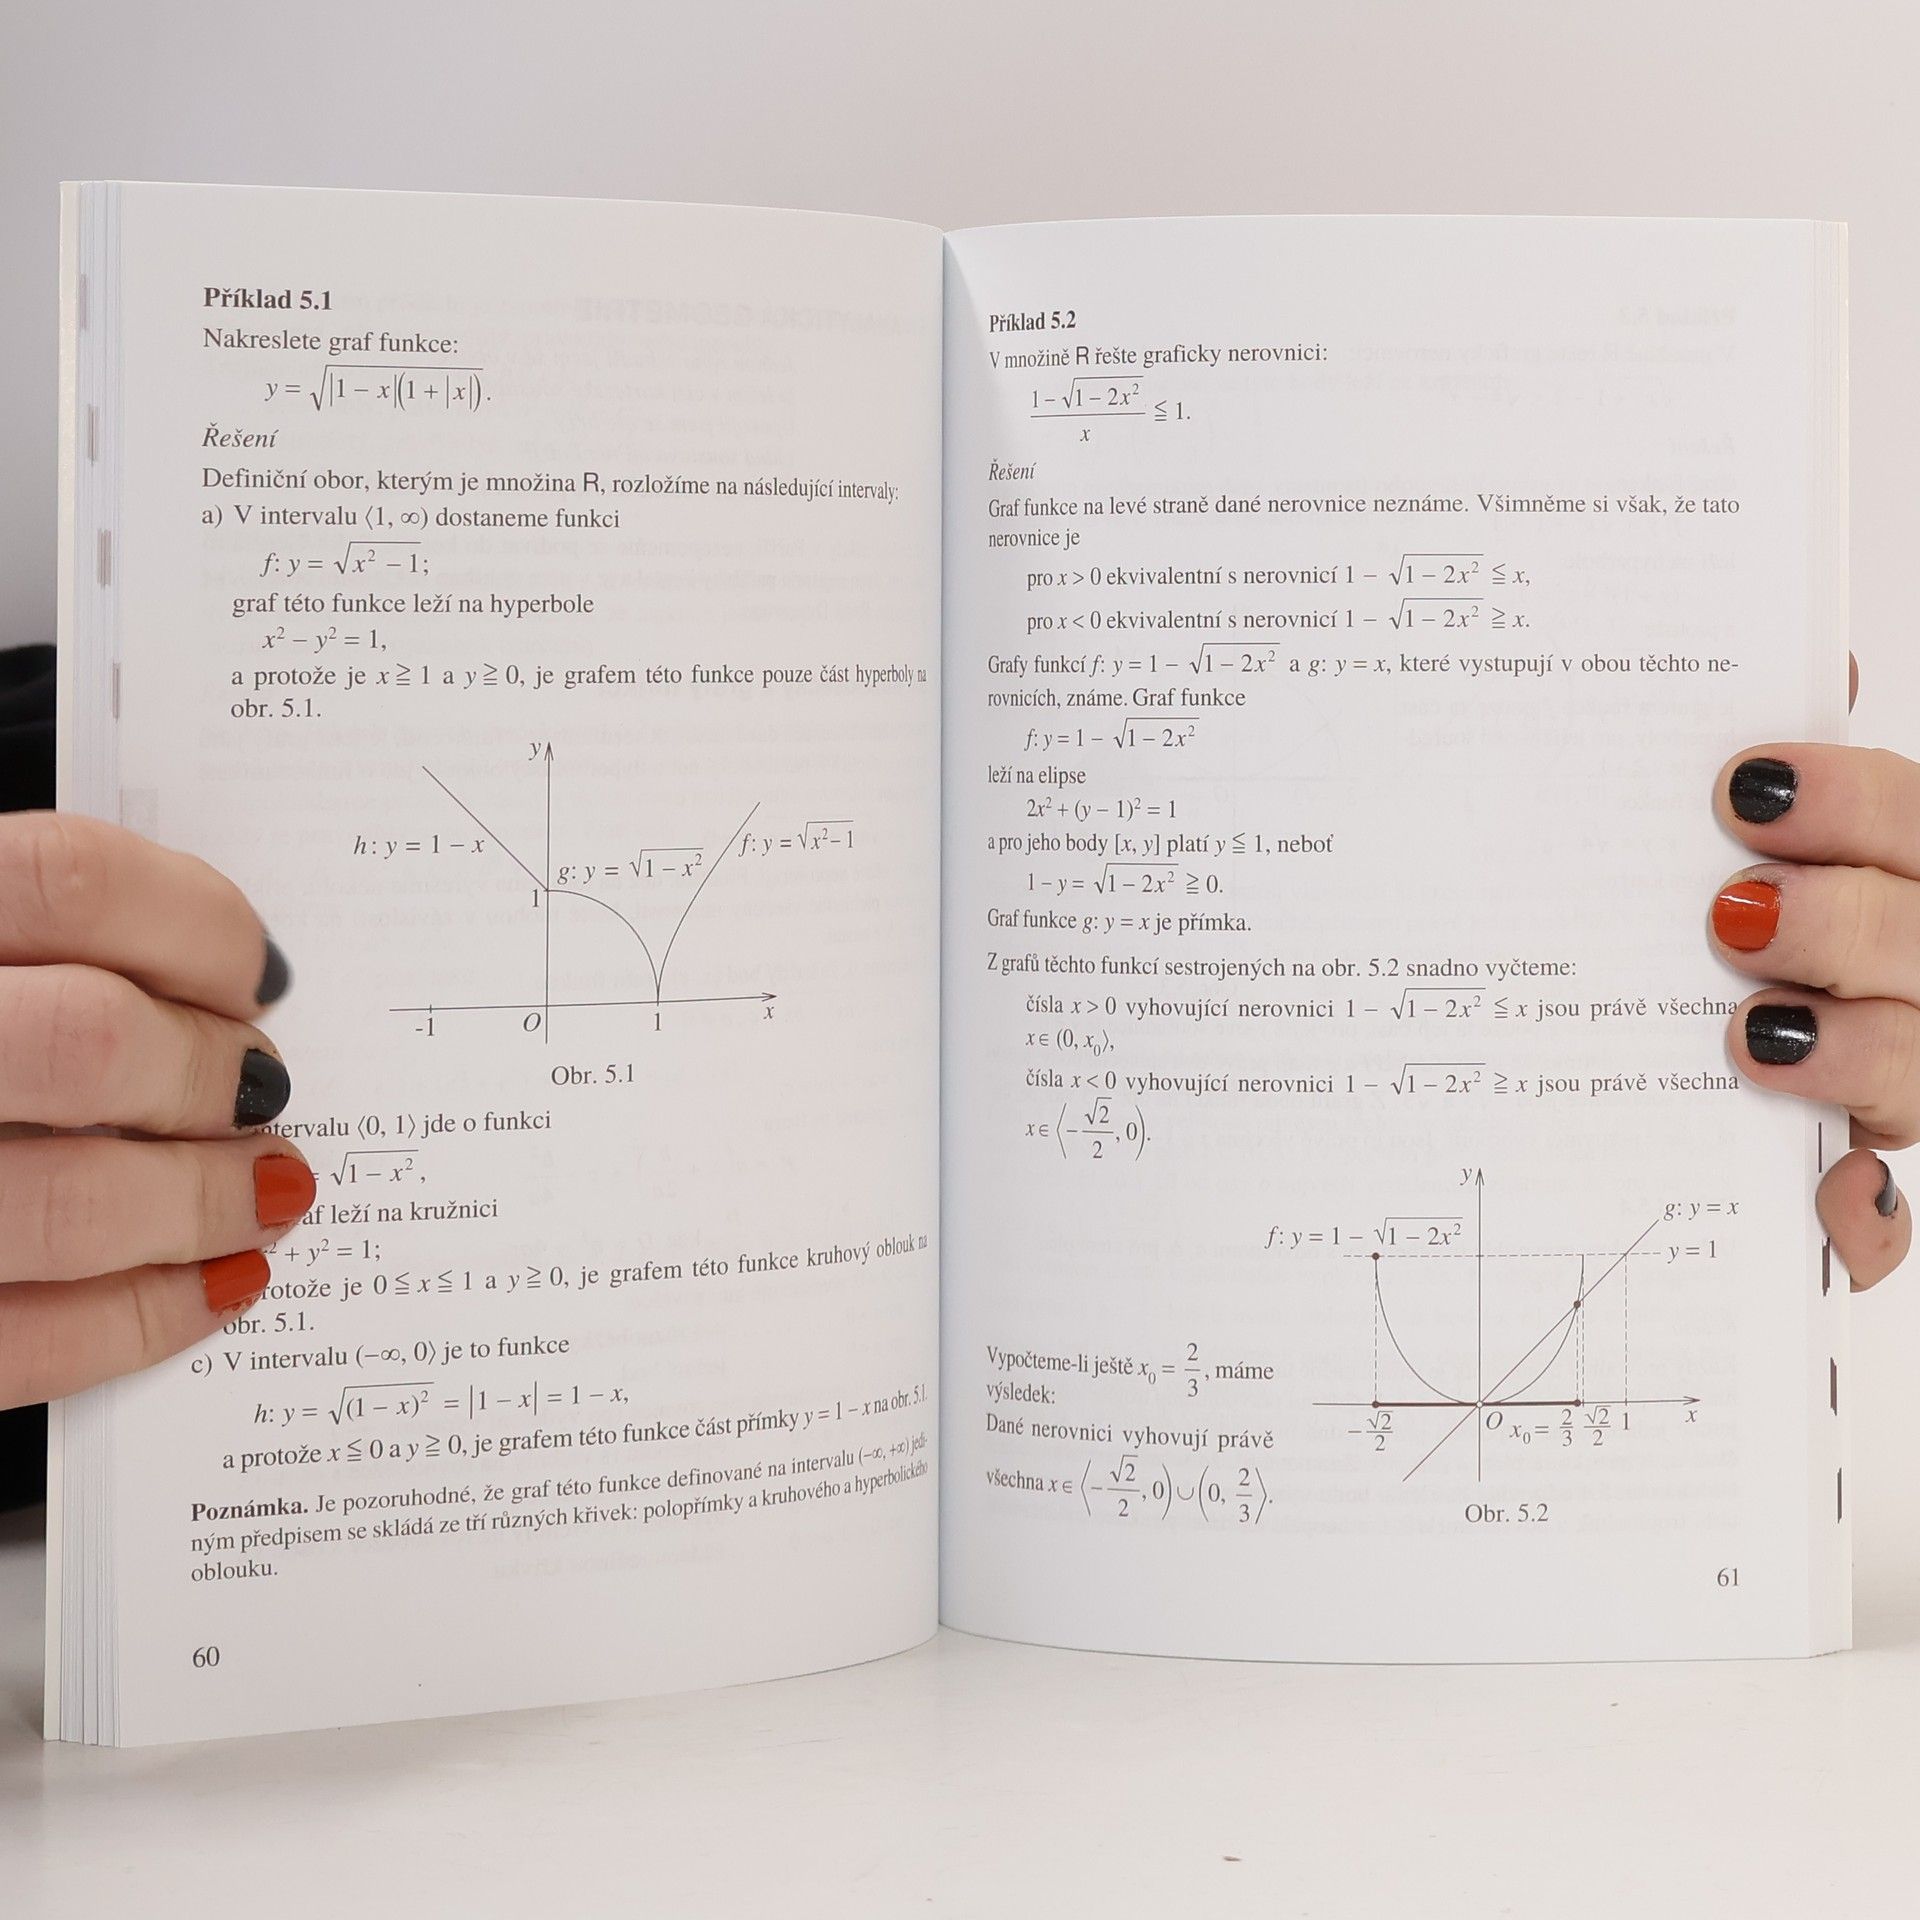 Příklad 5.1
Nakreslete graf funkce:
y = √(|1 − x|(1 + |x|)).
Řešení
Definiční obor, kterým je množina R, rozložíme na následující intervaly:
a) V intervalu ⟨1, ∞) dostaneme funkci
f: y = √(x² − 1);
graf této funkce leží na hyperbole
x² − y² = 1,
a protože je x ≧ 1 a y ≧ 0, je grafem této funkce pouze část hyperboly na
obr. 5.1.
y
h: y = 1 − x
g: y = √(1 − x²)
f: y = √(x² − 1)
1
-1 O 1 x
Obr. 5.1
intervalu ⟨0, 1⟩ jde o funkci
= √(1 − x²),
leží na kružnici
² + y² = 1;
protože je 0 ≦ x ≦ 1 a y ≧ 0, je grafem této funkce kruhový oblouk na
obr. 5.1.
c) V intervalu (−∞, 0⟩ je to funkce
h: y = √((1 − x)²) = |1 − x| = 1 − x,
a protože x ≦ 0 a y ≧ 0, je grafem této funkce část přímky y = 1 − x na obr. 5.1.
Poznámka. Je pozoruhodné, že graf této funkce definované na intervalu (−∞, +∞) jedi-
ným předpisem se skládá ze tří různých křivek: polopřímky a kruhového a hyperbolického
oblouku.
60
Příklad 5.2
V množině R řešte graficky nerovnici:
(1 − √(1 − 2x²))/x ≦ 1.
Řešení
Graf funkce na levé straně dané nerovnice neznáme. Všimněme si však, že tato
nerovnice je
pro x > 0 ekvivalentní s nerovnicí 1 − √(1 − 2x²) ≦ x,
pro x < 0 ekvivalentní s nerovnicí 1 − √(1 − 2x²) ≧ x.
Grafy funkcí f: y = 1 − √(1 − 2x²) a g: y = x, které vystupují v obou těchto ne-
rovnicích, známe. Graf funkce
f: y = 1 − √(1 − 2x²)
leží na elipse
2x² + (y − 1)² = 1
a pro jeho body [x, y] platí y ≦ 1, neboť
1 − y = √(1 − 2x²) ≧ 0.
Graf funkce g: y = x je přímka.
Z grafů těchto funkcí sestrojených na obr. 5.2 snadno vyčteme:
čísla x > 0 vyhovující nerovnici 1 − √(1 − 2x²) ≦ x jsou právě všechna
x ∈ (0, x₀⟩,
čísla x < 0 vyhovující nerovnici 1 − √(1 − 2x²) ≧ x jsou právě všechna
x ∈ ⟨−√2/2, 0).
Vypočteme-li ještě x₀ = 2/3, máme
výsledek:
Dané nerovnici vyhovují právě
všechna x ∈ ⟨−√2/2, 0) ∪ (0, 2/3⟩.
y
g: y = x
f: y = 1 − √(1 − 2x²)
y = 1
−√2/2 O x₀ = 2/3 √2/2 1 x
Obr. 5.2
61